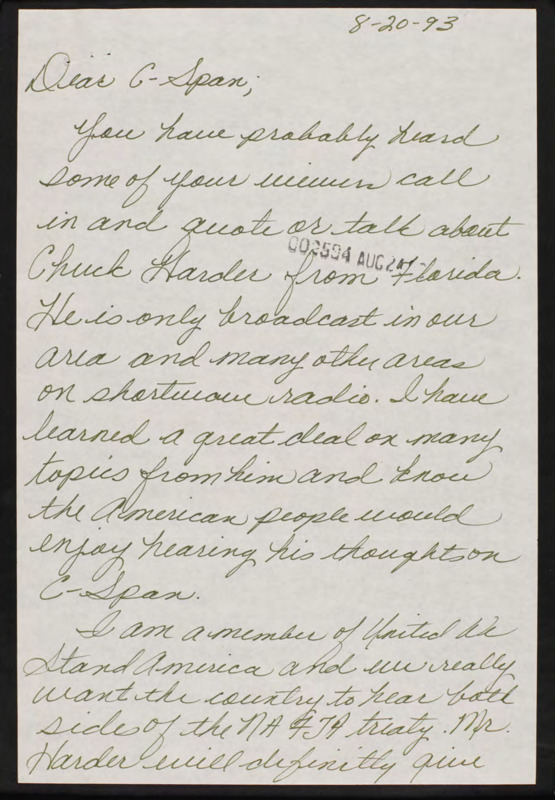 8-20-93
Dear C-Span;
You have probably heard
some of your viewers call
in and quote or talk about
003594 AUG 24
Chuck Harder from Florida.
He is only broadcast in our
area and many other areas
on shortwave radio. I have
learned a great deal on many
topics from him and know
the American people would
enjoy hearing his thoughts on
C-Span.
I am a member of United We
Stand America and we really
want the country to hear both
sides of the NAFTA treaty. Mr.
Harder will definitly give